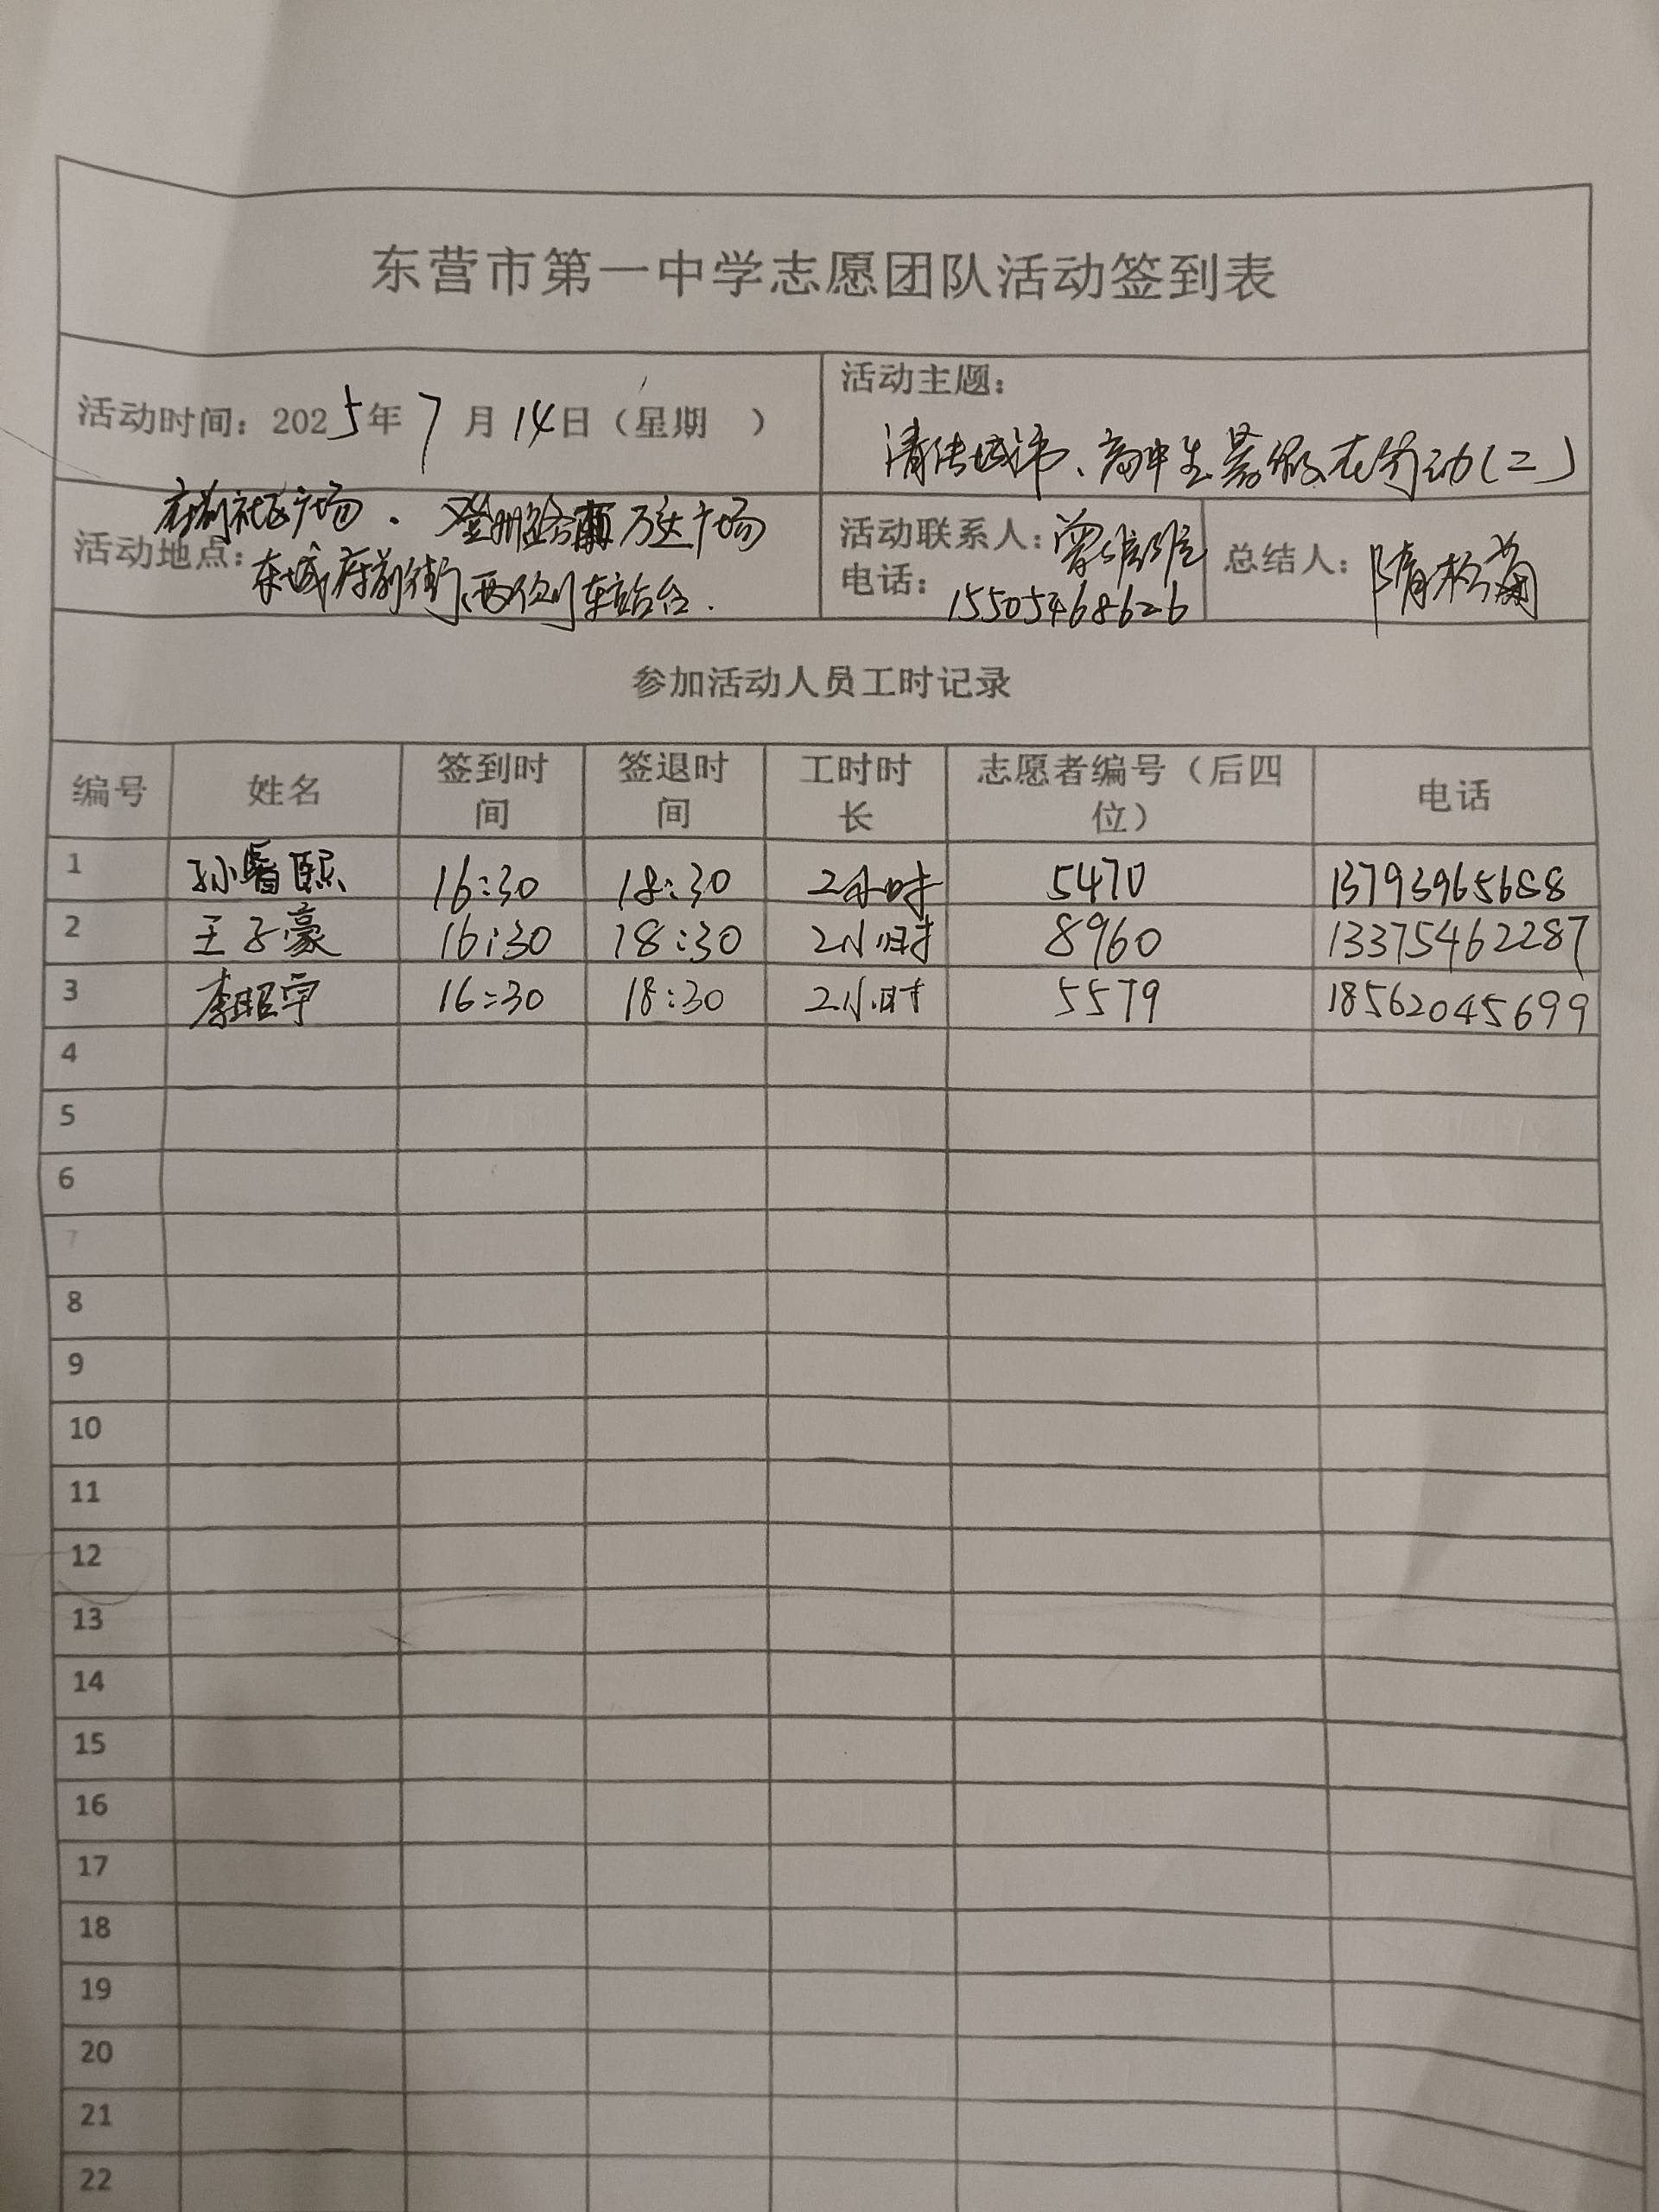 东营市第一中学志愿团队活动签到表
活动时间：2025年7月14日（星期 ）
活动主题：
清洁城市、高中生暑假在行动(二)
府前社区广场. 登州路 万达广场
活动地点：东城府前街两侧车站台.
活动联系人：曾
电话：15505468626
总结人：隋松
参加活动人员工时记录
编号 姓名 签到时间 签退时间 工时时长 志愿者编号（后四位） 电话
1 孙睿熙 16:30 18:30 2小时 5470 13793965688
2 王子豪 16:30 18:30 2小时 8960 13375462287
3 李昭宇 16:30 18:30 2小时 5579 18562045699
4
5
6
7
8
9
10
11
12
13
14
15
16
17
18
19
20
21
22